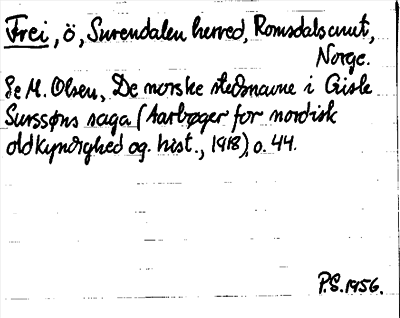 Frei, ö, Surendalen herred, Romsdals amt,
Norge.
Se M. Olsen, De norske stedsnavne i Gisle
Surssøns saga (Aarbøger for nordisk
oldkyndighed og. hist., 1918), o. 44.
P.S. 1956.